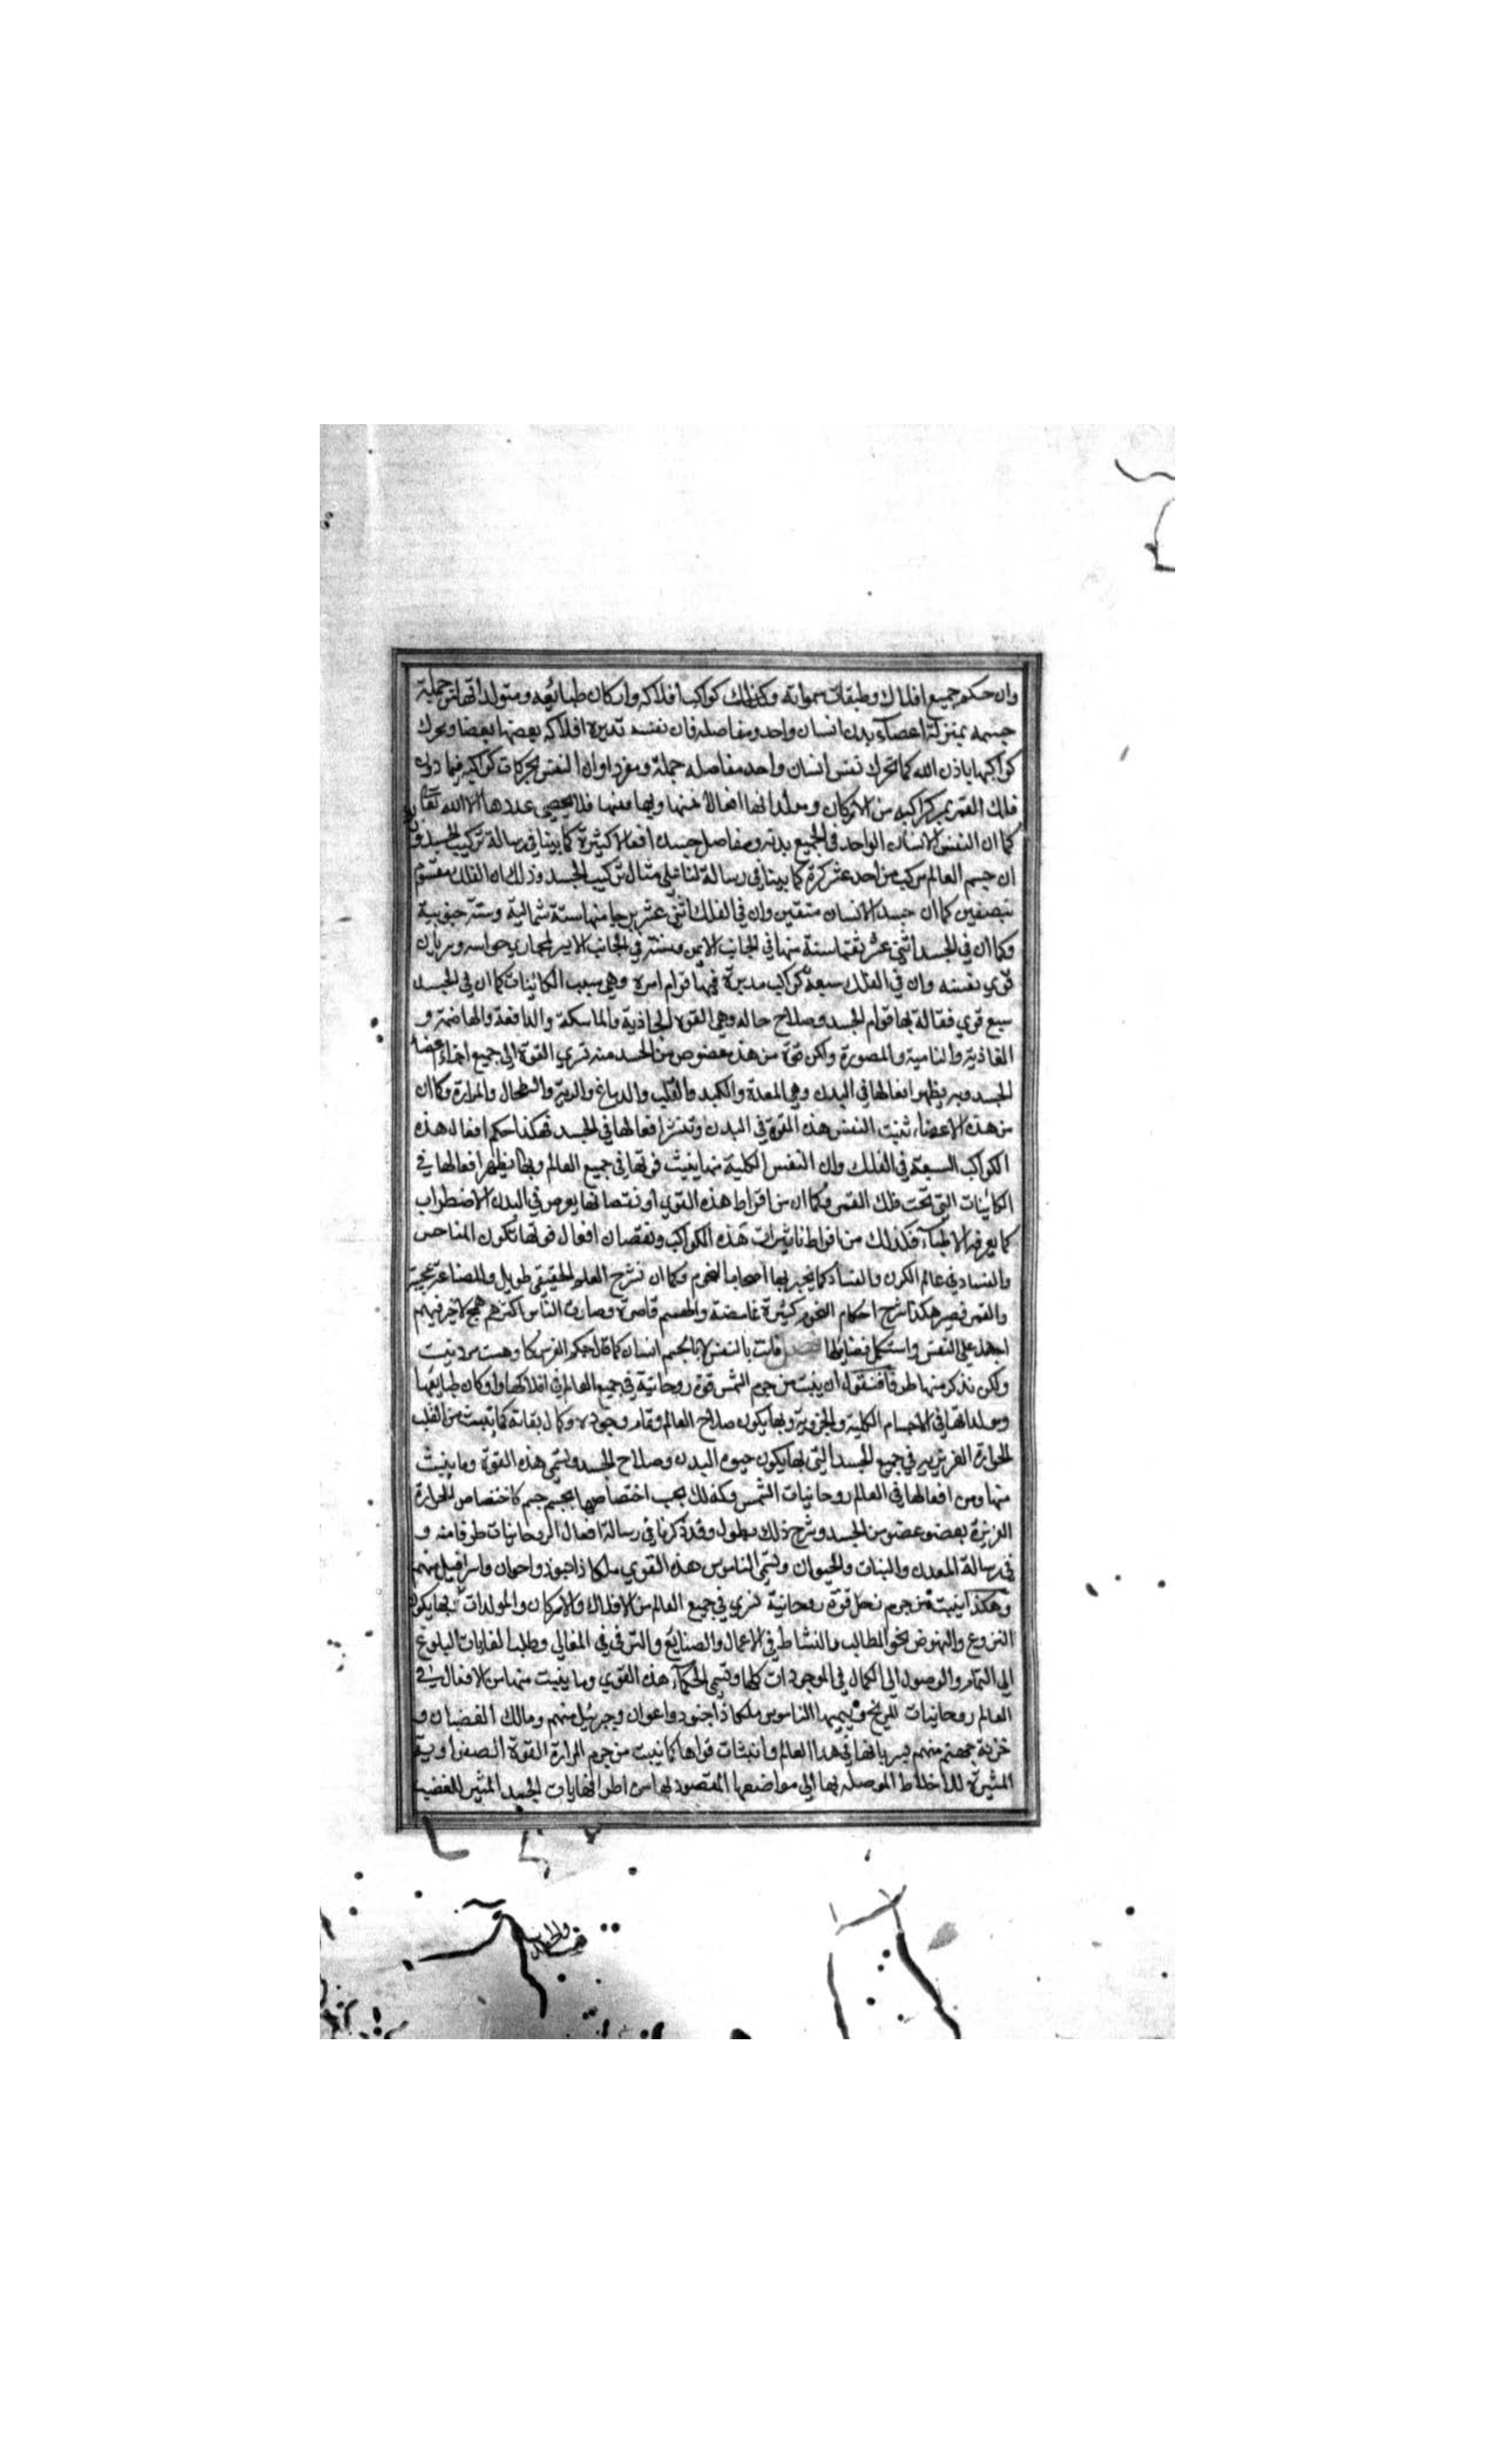 وان حكم جميع افلاك وطبقات سمواته وكذلك كواكب افلاكه واركان طبائعه ومتولداتها من جملة
جسمه بمنزلة اعضآء بدن انسان واحد ومفاصله فان نفسه تديره افلاكه بعضها بعضا ويحرك
كواكبها باذن الله كما تحرك نفس انسان واحد مفاصله جملة ومفردا وان النفس بحركات كواكبه فيما دون
فلك القمر بمركز اكبه من الاركان ومولداتها افعالا منها وبها ومنها فلا يحصي عددها الا الله تعا
كما ان النفس الانسان الواحد في الجميع بدنه ومفاصل جسده افعالا كثيرة كما بينا في رسالة تركيب الجسد و
ان جسم العالم مركب من احد عشر كرة كما بينا في رسالة لنا على مثال تركيب الجسد وذلك ان الفلك مقسوم
نبصفين كما ان جسد الانسان متقين وان في الفلك اثني عشر برجا منها ستة شمالية وستة جنوبية
وكما ان في الجسد اثني عشر ثقبا ستة منها في الجانب الايمن وستة في الجانب الايسر لمجاري حواسه وسريان
قوي نفسه وان في الفلك سبعة كواكب مدبرة فيها قوام امره وهي سبب الكائنات كما ان في الجسد
سبع قوي فعالة بها قوام الجسد وصلاح حاله وهي القوة الجاذبة والماسكة والدافعة والهاضمة و
الغاذية والنامية والمصورة ولكن قوة من هذه عضوص من الجسد منه تسري القوة الي جميع اجزاء اعضا
الجسد وبه يظهر افعالها في البدن وهي المعدة والكبد والقلب والدماغ والرية والطحال والمرارة وكما ان
من هذه الاعضاء تنبت النفس هذه القوة في البدن وتنشر افعالها في الجسد فهكذا حكم افعال هذه
الكواكب السبعة في الفلك وان النفس الكلية منها ينبث قوتها في جميع العالم وبها يظهر افعالها في
الكائنات التي تحت فلك القمر وكما ان من افراط هذه القوي او نقصانها يعرض في البدن الاضطراب
كما يعرفه الاطبآء فكذلك من افراط تاثيرات هذه الكواكب ونقصان افعال قوتها تكون المناحس
والفساد في عالم الكون والفساد كما يخبر بها اصحاب النجوم وكما ان شرح العلم الحقيقي طويل والصناعة عجيبة
والقمر قصير هكذا شرح احكام النجوم كثيرة غامضة والهمم قاصرة وصارت الناس اكثرهم همج لاخير فيهم
اجهد علي النفس واستكمل فضايلها فصل فانت بالنفس لا بالجسم انسان كما قال حكم الفرس
ولكن نذكر منها طرفا فنقول ان ينبث من جرم الشمس قوة روحانية في جميع العالم في افلاكها واركان طبايعها
ومولداتها في الاجسام الكلية والجزوية وبها يكون صلاح العالم وتمام وجوده وكمال بقائه كما ينبث من القلب
الحرارة الغريزية في جميع الجسد التي بها يكون حيوة البدن وصلاح الجسد وتسمي هذه القوة وما ينبث
منها ومن افعالها في العالم روحانيات الشمس وكذلك بحب اختصاصها بجسم جسم كاختصاص الحرارة
الغزيزة بعضو عضو من الجسد وشرح ذلك يطول وقد ذكرنا في رسالة افعال الروحانيات طرفا منه و
في رسالة المعدن والنبات والحيوان وتسمي الناموس هذه القوي ملكا ذا جنود واعوان واسرافيل منهم
وهكذا ينبث من جرم زحل قوة روحانية تسري في جميع العالم من الافلاك والاركان والمولدات وبها يكون
النزوع والنهوض نحو المطالب والنشاط في الاعمال والصنايع والترقي في المعالي وطلب الغايات البلوغ
الي التمام والوصول الي الكمال في الموجودات كلها وتسمي الحكمآء هذه القوي وما ينبث منها من الافعال في
العالم روحانيات المريخ وتسميها الناموس ملكا ذا جنود واعوان وجبرئيل منهم ومالك الغضبان و
خزنة جهنم منهم بسريانها في هذا العالم وانبثات قواها كما ينبث من جرم المرارة القوة الصفراوية
المثيرة للاخلاط الموصلة بها الي مواضعها المقصود بها من اطراف نهايات الجسد المثير للغضب